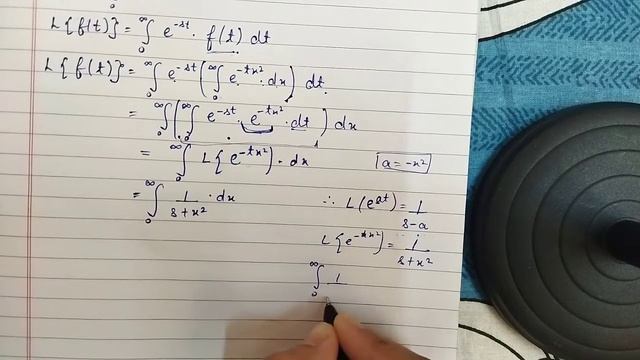 L{f(t)} = ∫₀^∞ e^{-st} · f(t) dt
L{f(t)} = ∫₀^∞ e^{-st} (∫₀^∞ e^{-tx²} · dx) dt.
= ∫₀^∞ (∫₀^∞ e^{-st} · e^{-tx²} · dt) dx
= ∫₀^∞ L{e^{-tx²}} · dx
a = -x²
= ∫₀^∞ 1/(s+x²) · dx
∴ L(e^{at}) = 1/(s-a)
L{e^{-tx²}} = 1/(s+x²)
∫₀^∞ 1